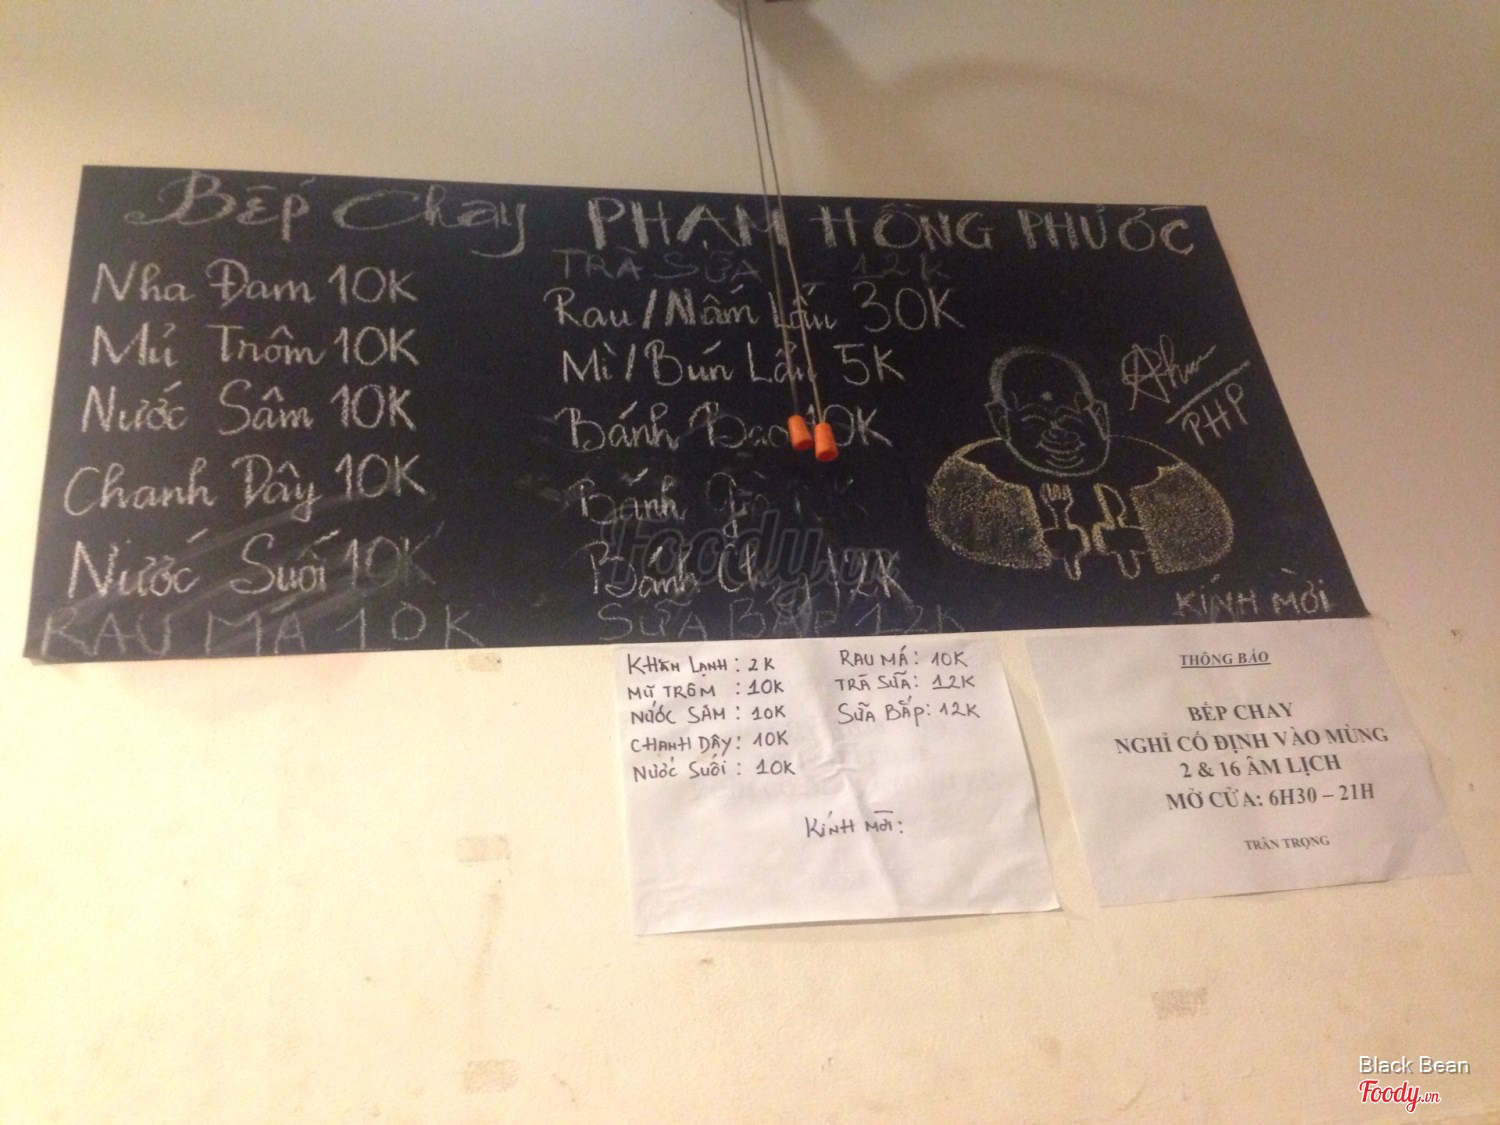 Bếp Chay PHẠM HỒNG PHƯỚC
Nha Đam 10K
Mủ Trôm 10K
Nước Sâm 10K
Chanh Dây 10K
Nước Suối 10K
RAU MÁ 10K
TRÀ SỮA 12K
Rau/Nấm Lẩu 30K
Mì/Bún Lẩu 5K
Bánh Bao 10K
Bánh
Bánh Chay 12K
SỮA BẮP 12K
PHP
KÍNH MỜI
KHĂN LẠNH: 2K
MŨ TRÔM: 10K
NƯỚC SÂM: 10K
CHANH DÂY: 10K
NƯỚC SUỐI: 10K
RAU MÁ: 10K
TRÀ SỮA: 12K
SỮA BẮP: 12K
KÍNH MỜI:
THÔNG BÁO
BẾP CHAY
NGHỈ CỐ ĐỊNH VÀO MÙNG
2 & 16 ÂM LỊCH
MỞ CỬA: 6H30 – 21H
TRÂN TRỌNG
Foody.vn
Black Bean
Foody.vn